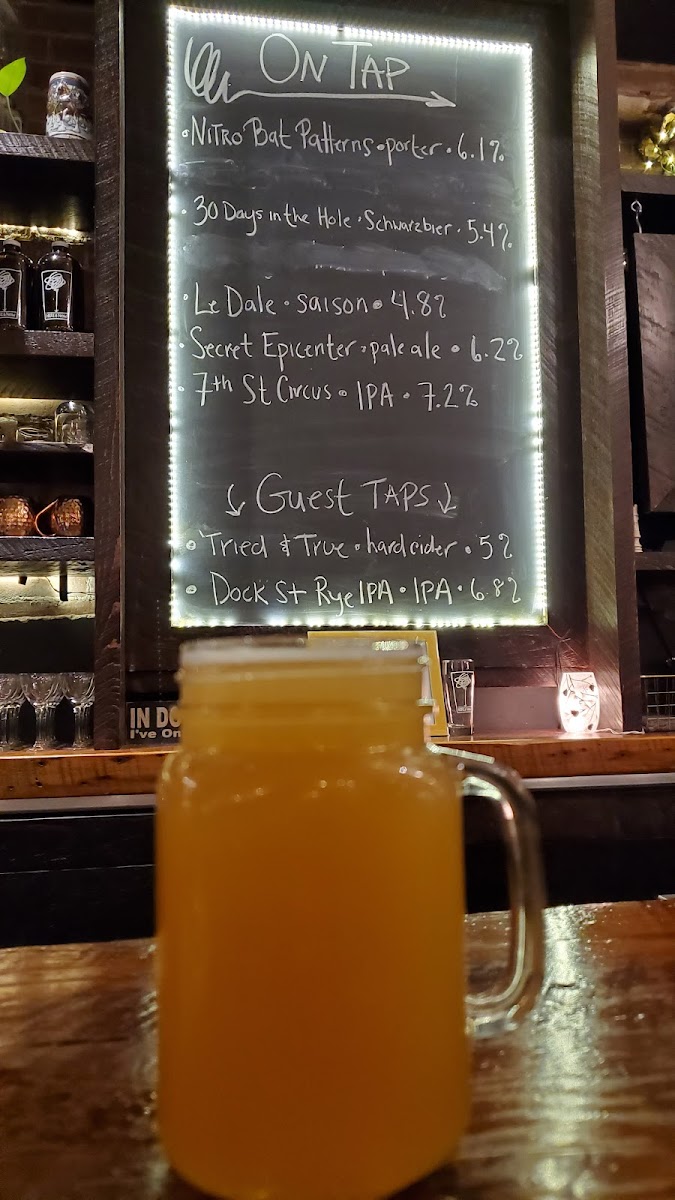 On Tap
• Nitro Bat Patterns • porter • 6.1%
• 30 Days in the Hole • Schwarzbier • 5.4%
• Le Dale • saison • 4.8%
• Secret Epicenter • pale ale • 6.2%
• 7th St Circus • IPA • 7.2%
Guest Taps
• Tried & True • hard cider • 5%
• Dock St Rye IPA • IPA • 6.8%
IN DO
I've On